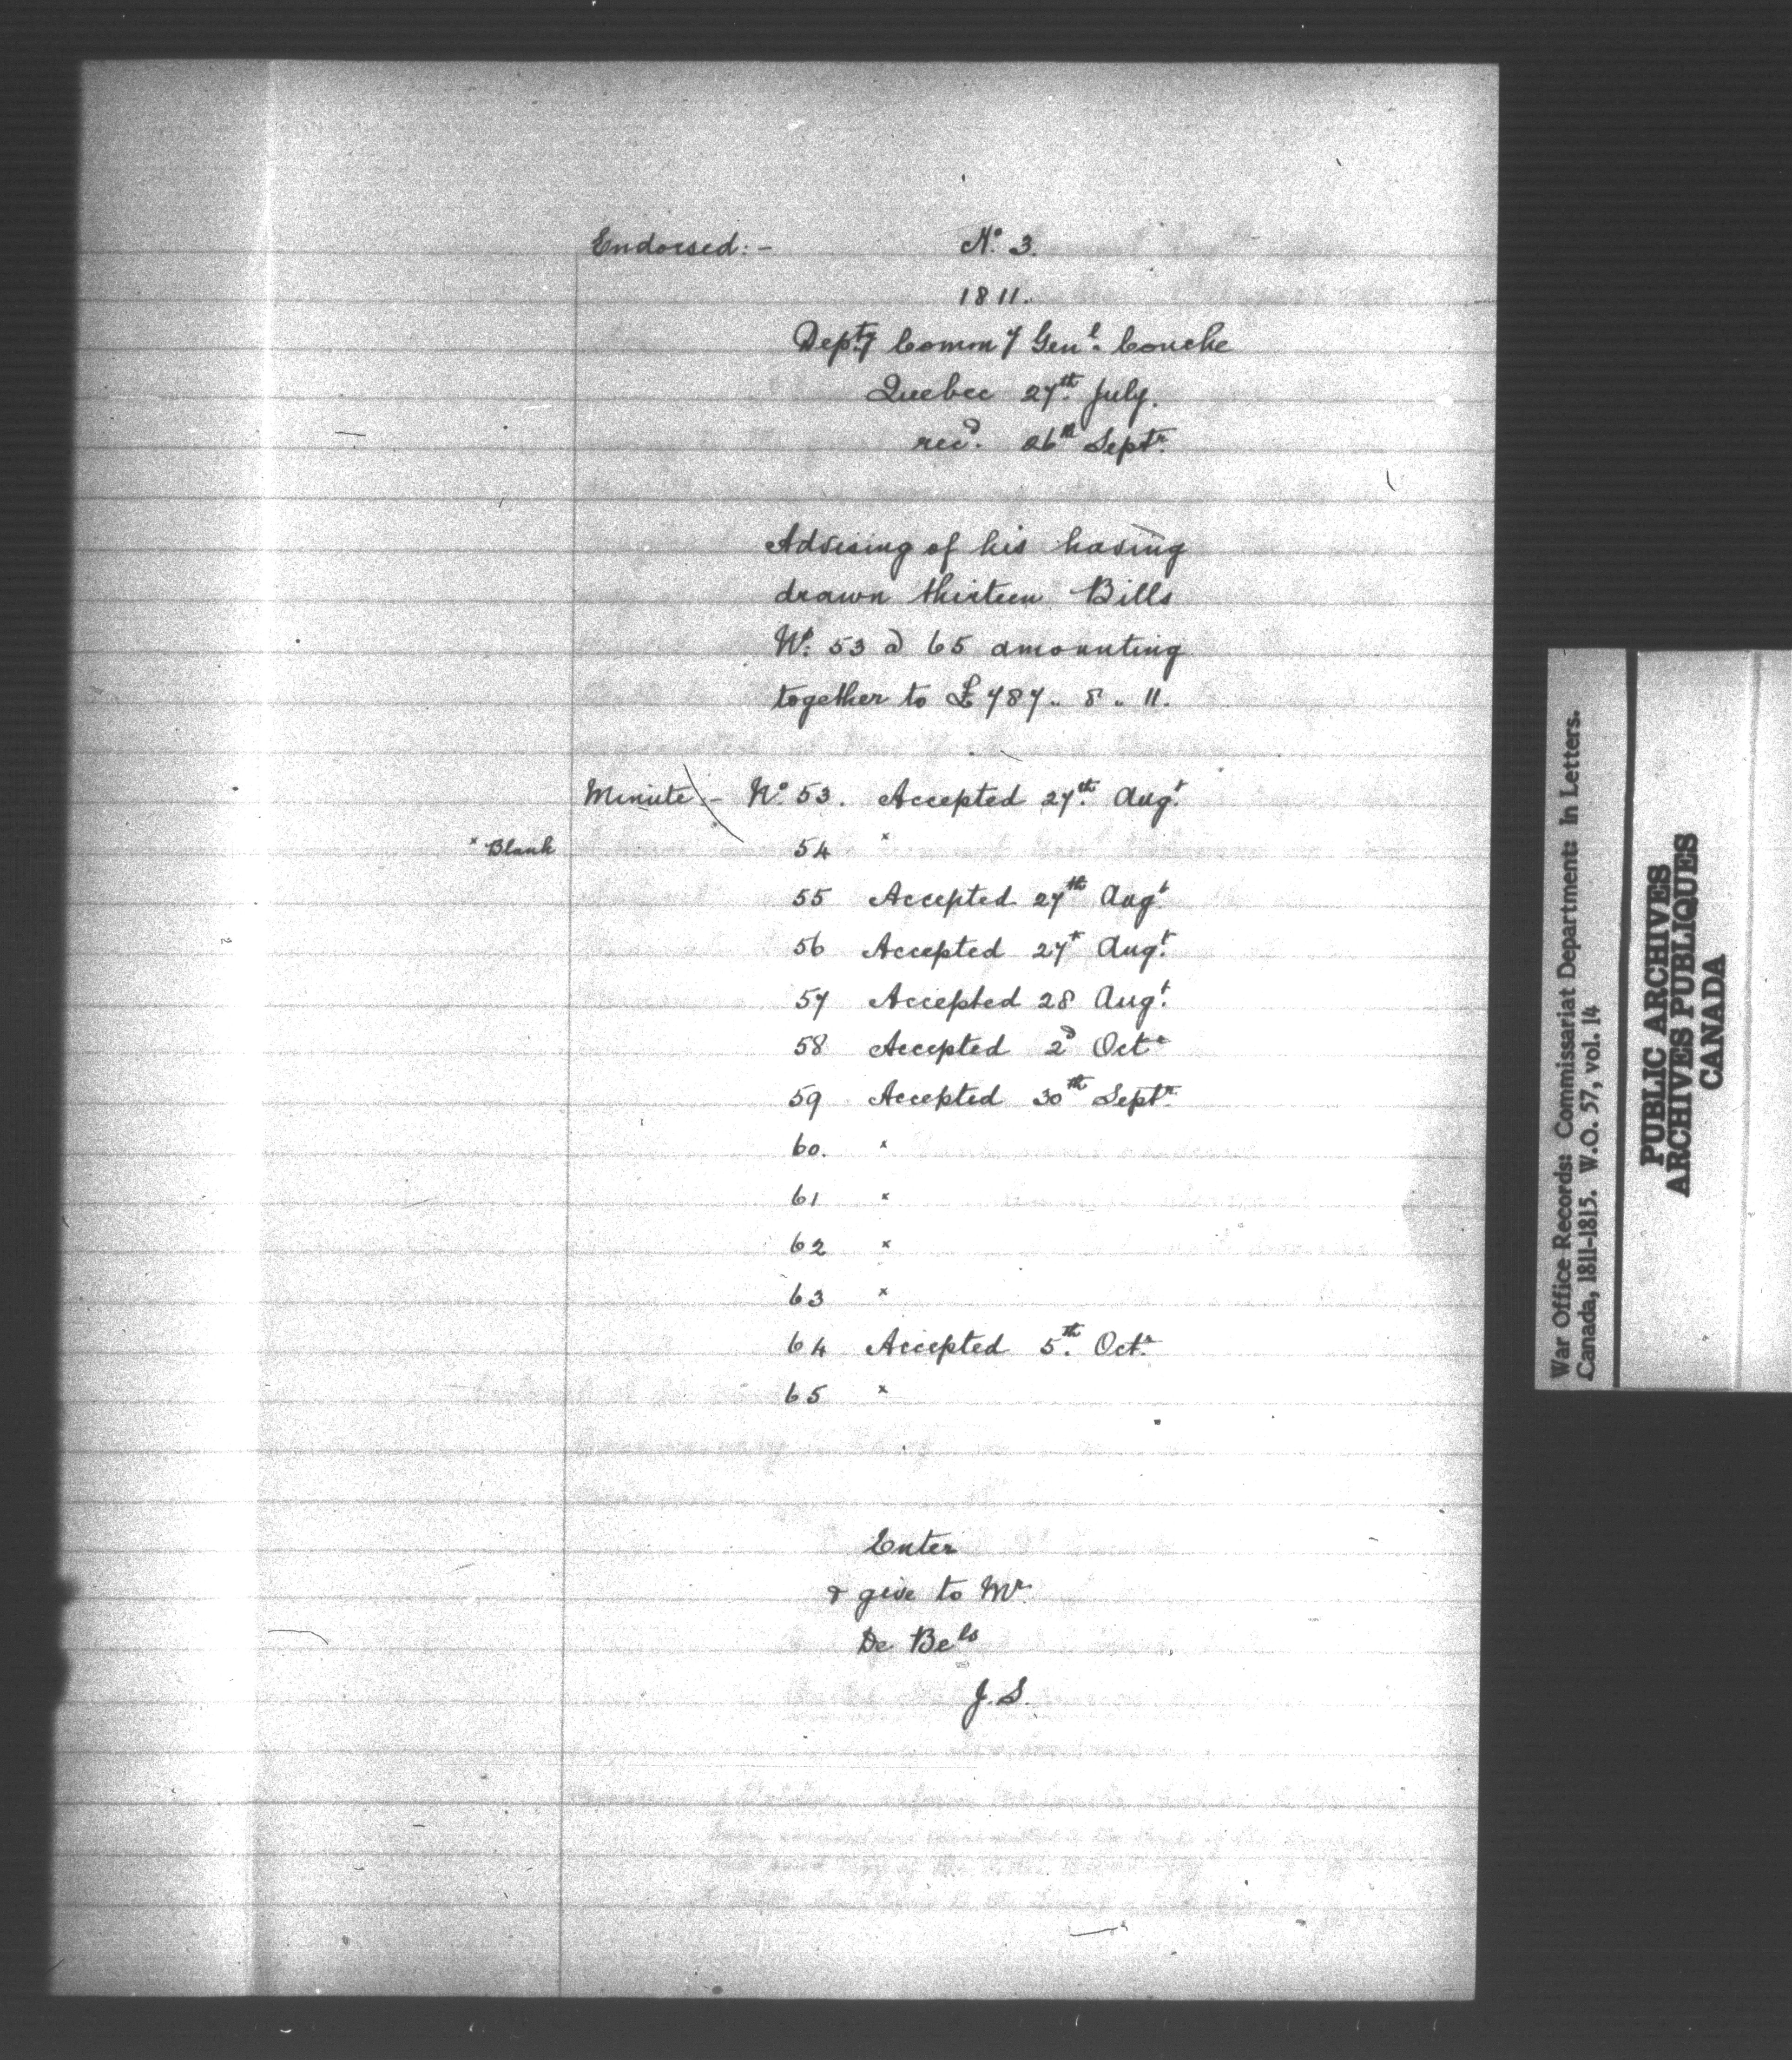 Endorsed:- Nº 3.
1811.
Depty Commy Genl. Couche
Quebec 27th July.
recd. 26th Septr.
Advising of his having
drawn thirteen Bills
Nº. 53 a 65 amounting
together to £787.. 8.. 11.
Minute - Nº 53. Accepted 27th. Augt.
x Blank 54 x
55 Accepted 27th Augt.
56 Accepted 27th Augt.
57 Accepted 28 Augt.
58 Accepted 2d Octr
59 Accepted 30th Septr.
60. x
61 x
62 x
63 x
64 Accepted 5th. Octr.
65 x
Enter
& give to Mr.
De Be
J. S.
War Office Records: Commissariat Department: In Letters.
Canada, 1811-1815. W.O. 57, vol. 14
PUBLIC ARCHIVES
ARCHIVES PUBLIQUES
CANADA